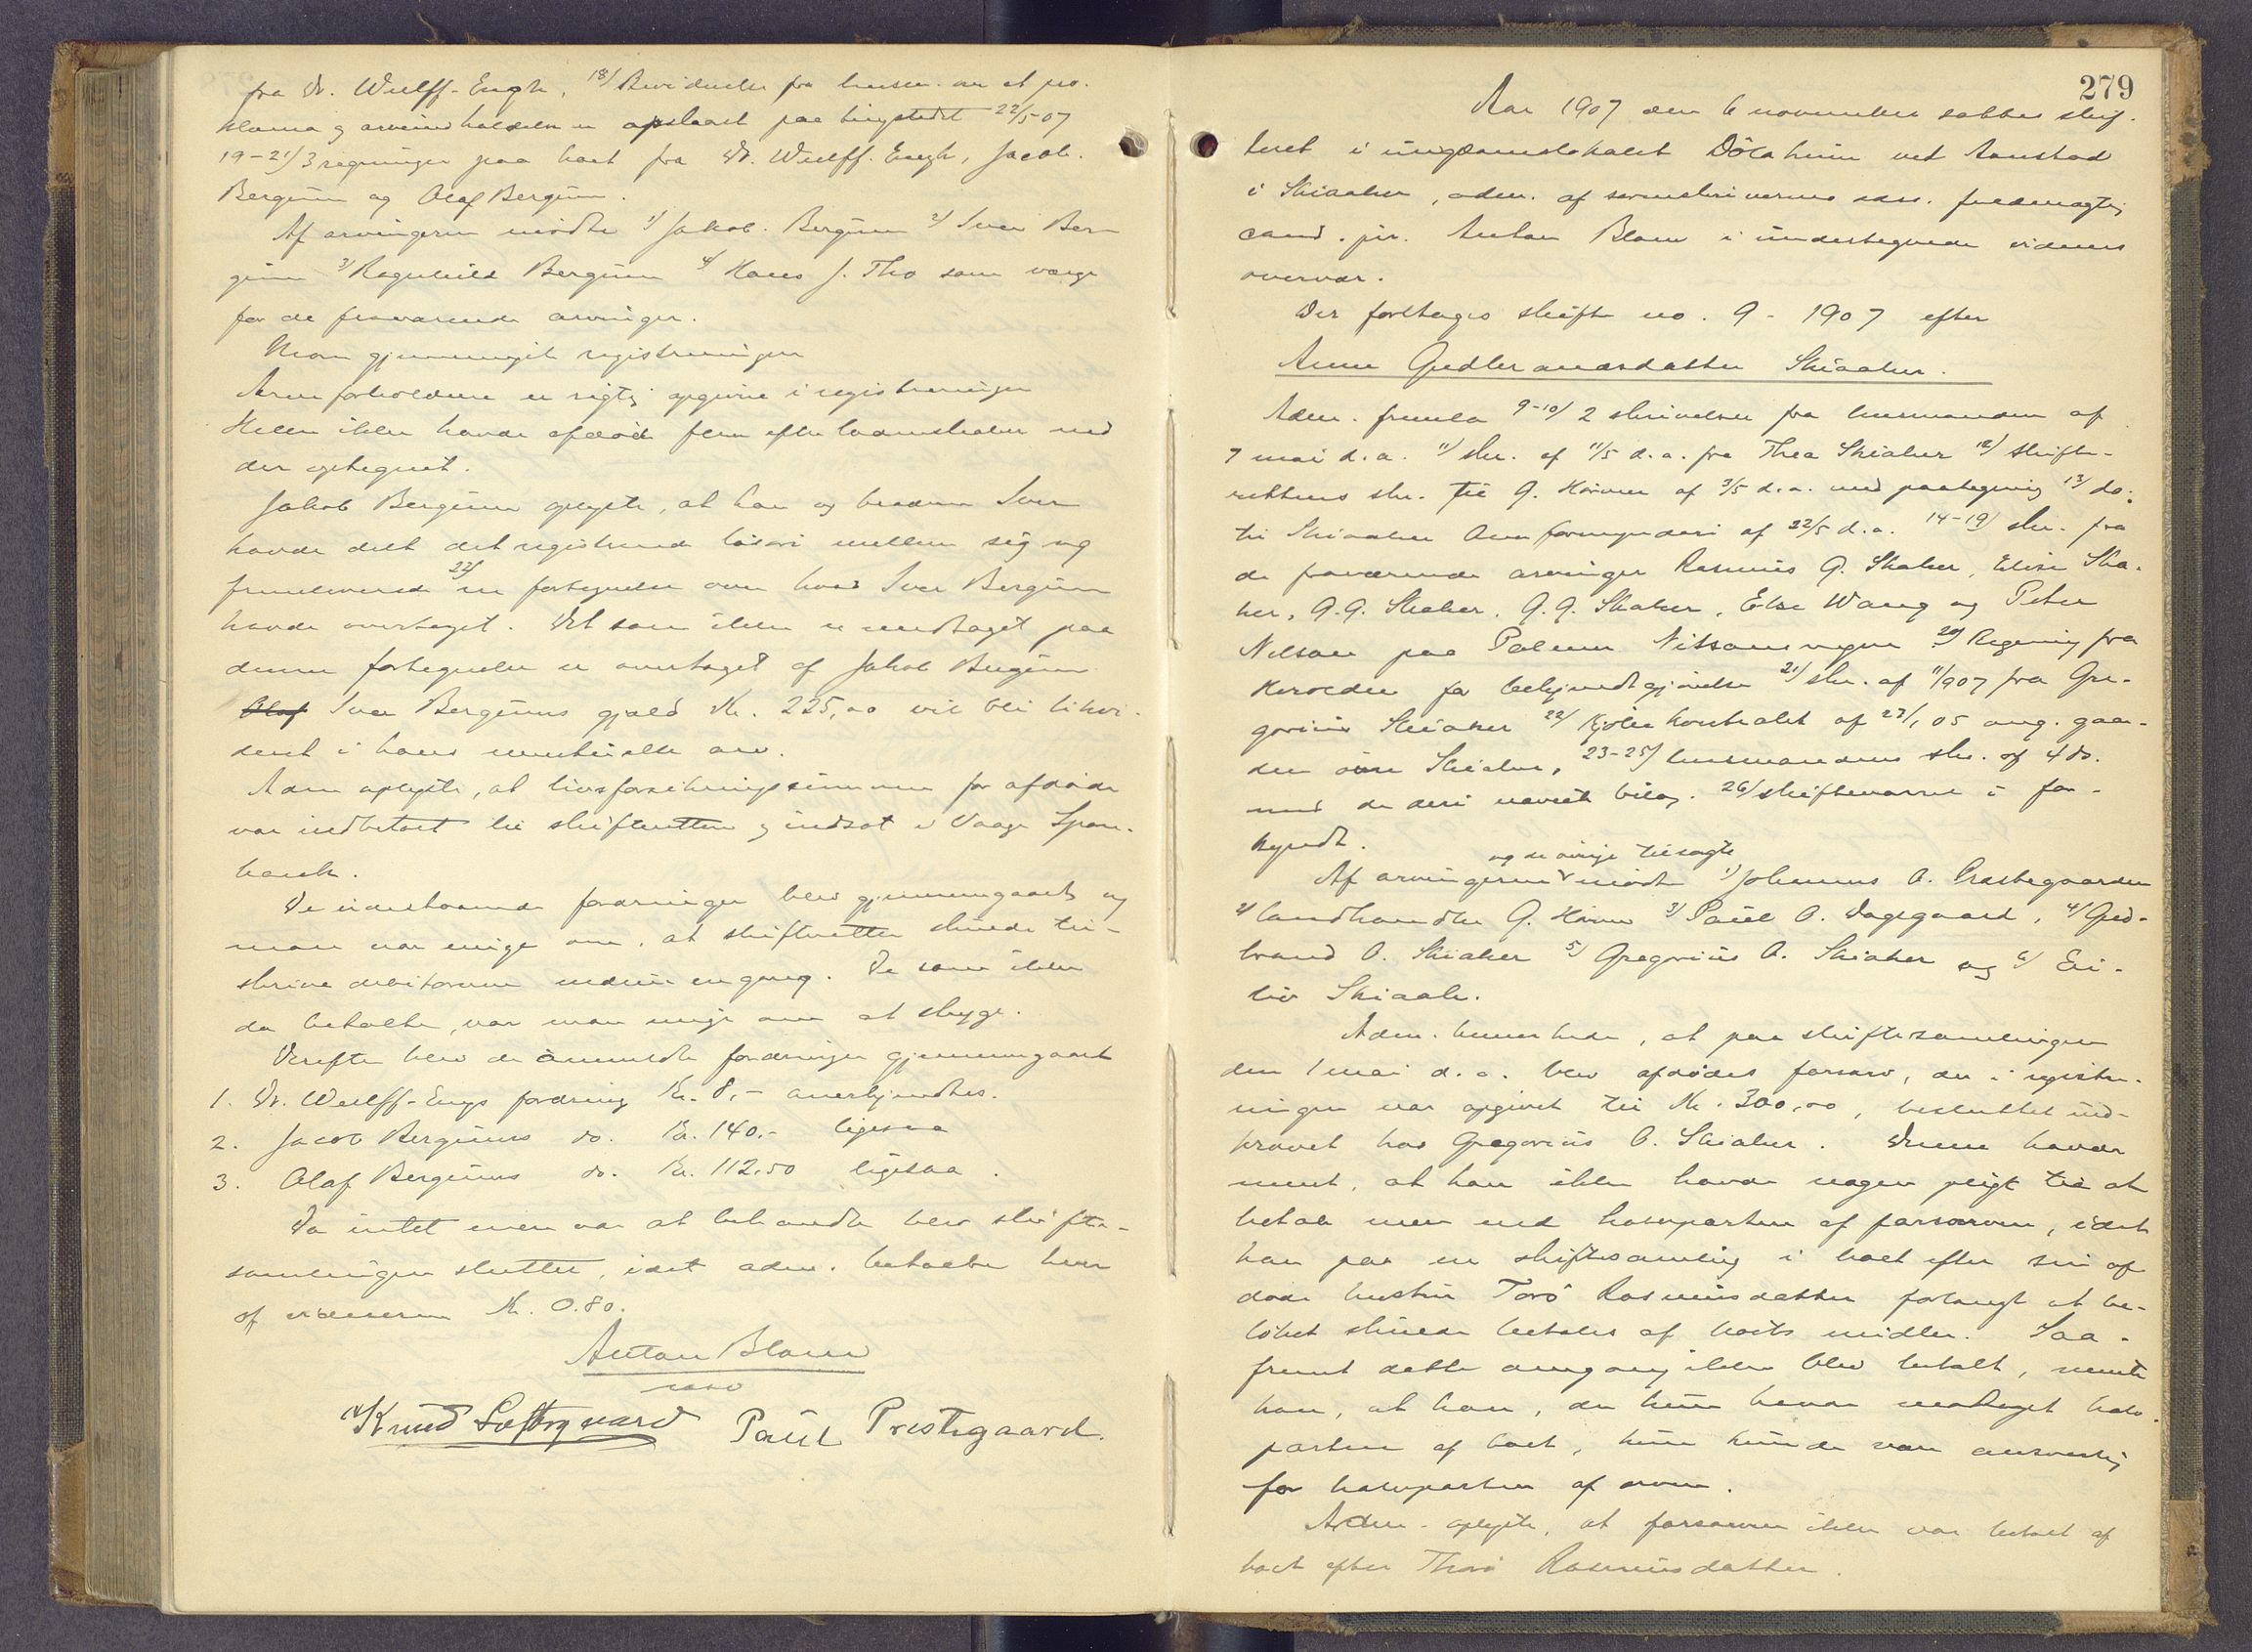 fra Dr. Wulff-Engh, 18/ Bevidnelse fra lensm. om at pro-
klama og arveindkaldelse er opslaaet paa tingstedet 22/5-07
19-21/ 3 regninger paa boet fra Dr. Wulff-Engh, Jacob
Bergum og Olaf Bergum.
Af arvingerne mødte 1/ Jakob Bergum 2/ Iver Ber-
gum 3/ Ragnhild Bergum 4/ Hans J. Tho som værge
for de fraværende arvinger.
Man gjennemgik registreringen
Arveforholdene er rigtig opgivne i registreringen
Heller ikke havde afdøde flere efterladenskaber end
der optegnet.
Jakob Bergum oplyste, at han og broderen Iver
havde delt det registrerede løsøre mellem sig og
fremleverede 22/ en fortegnelse over hvad Iver Bergum
havde overtaget. Det som ikke er medtaget paa
denne fortegnelse er overtaget af Jakob Bergum
Olaf Iver Bergums gjæld Kr. 225,00 vil bli likvi-
deret i hans eventuelle arv.
Adm oplyste, at livsforsikringssummen for afdøde
var indbetalt til skifteretten og indsat i Vaage Spare-
bank.
De udestaaende fordringer blev gjennemgaaet og
man var enige om, at skifteretten skulde til-
skrive debitorerne endnu engang. De som ikke
da betalte, var man enige om at stryge.
Derefter blev de anmeldte fordringer gjennemgaaet
1. Dr. Wulff-Enghs fordring Kr. 8,- anerkjendtes.
2. Jacob Bergums do. Kr. 140.- ligesaa
3. Olaf Bergums do. Kr. 112.50 ligesaa.
Da intet mere var at behandle blev skifte-
samlingen sluttet, idet adm. betalte hver
af vidnerne Kr. 0.80.
Anton Blom
Knud Løftsgaard Paul Prestgaard.
279
Aar 1907 den 6 november sattes skif-
teret i ungdomslokalet Dölaheim ved Aanstad
i Skiaaker, adm. af sorenskriverens edsv. fuldmægtig
cand. jur. Anton Blom i undertegnede vidners
overvær.
Der foretoges skifte no. 9 - 1907 efter
Anne Gudbrandsdatter Skiaaker.
Adm. fremla 9-10/ 2 skrivelser fra lensmanden af
7 mai d.a. 11/ skr. af 11/5 d.a. fra Thea Skiaker 12/ skifte-
rettens skr. til G. Hörven af 3/5 d.a. med paategning 13/ do.
til Skiaaker Overformynderi af 22/5 d.a. 14-19/ skr. fra
de fraværende arvinger Rasmus G. Skaker, Elise Ska-
ker, G.G. Skaker, G.G. Skaker, Else Wang og Peter
Nilson paa Palmer Nilsons vegne 20/ Regning fra
for bekjendtgjörelse 21/ skr. af 11/907 fra Gre-
gorius Skiaker 22/ Kjøbekontrakt af 23/1 05 ang. gaar-
den øvre Skiaker, 23-25/ lensmandens skr. af 4 ds.
med de deri nævnte bilag. 26/ skifterne i for-
kyndt.
Af arvingerne og de øvrige tilsagte mødte 1/ Johannes O. Prestegaarden
2/ landhandler G. Hörven 3/ Paul O. Dagsgaard, 4/ Gud-
brand O. Skiaker 5/ Gregorius O. Skiaker og 6/ Ei-
liv Skiaak.
Adm. bemerkede, at paa skiftesamlingen
den 1 mai d.a. blev afdødes farsarv, der i registre-
ringen var opgivet til Kr. 300,00, besluttet ind-
krævet hos Gregorius O. Skiaker. Denne havde
ment, at han ikke havde nogen pligt til at
betale mere end halvparten af farsarven, idet
han paa en skiftesamling i boet efter sin af-
døde hustru Torö Rasmusdatter forlangt at be-
løbet skulde betales af boets midler. Saa-
fremt dette engang ikke blev betalt, mente
han, at han, der kun havde modtaget halv-
parten af boet, kun kunde være ansvarlig
for halvparten af arven.
Adm. oplyste, at farsarven ikke var betalt af
boet efter Thorö Rasmusdatter.